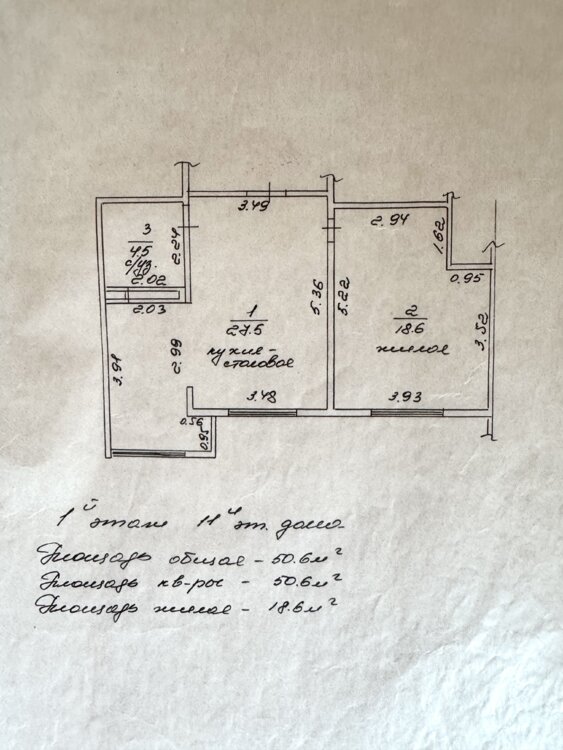 3.49
3
4.5
с/уз.
2.24
2.02
2.03
3.91
2.99
1
27.5
кухня-
столовая
3.48
0.56
0.95
5.36
5.22
2.94
1.62
0.95
2
18.6
жилое
3.52
3.93
1й этаж 11и эт. дома.
Площадь общая - 50.6м²
Площадь кв-ры - 50.6м²
Площадь жилая - 18.6м²